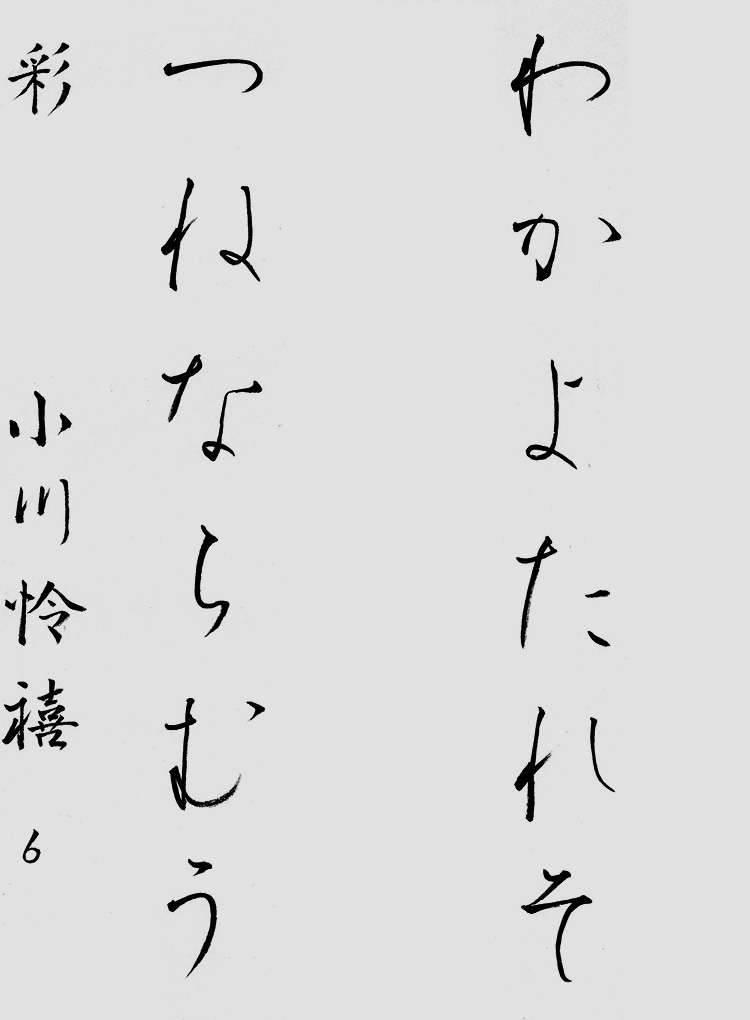 わかよたれそ
つねならむう
彩 小川怜禧 6